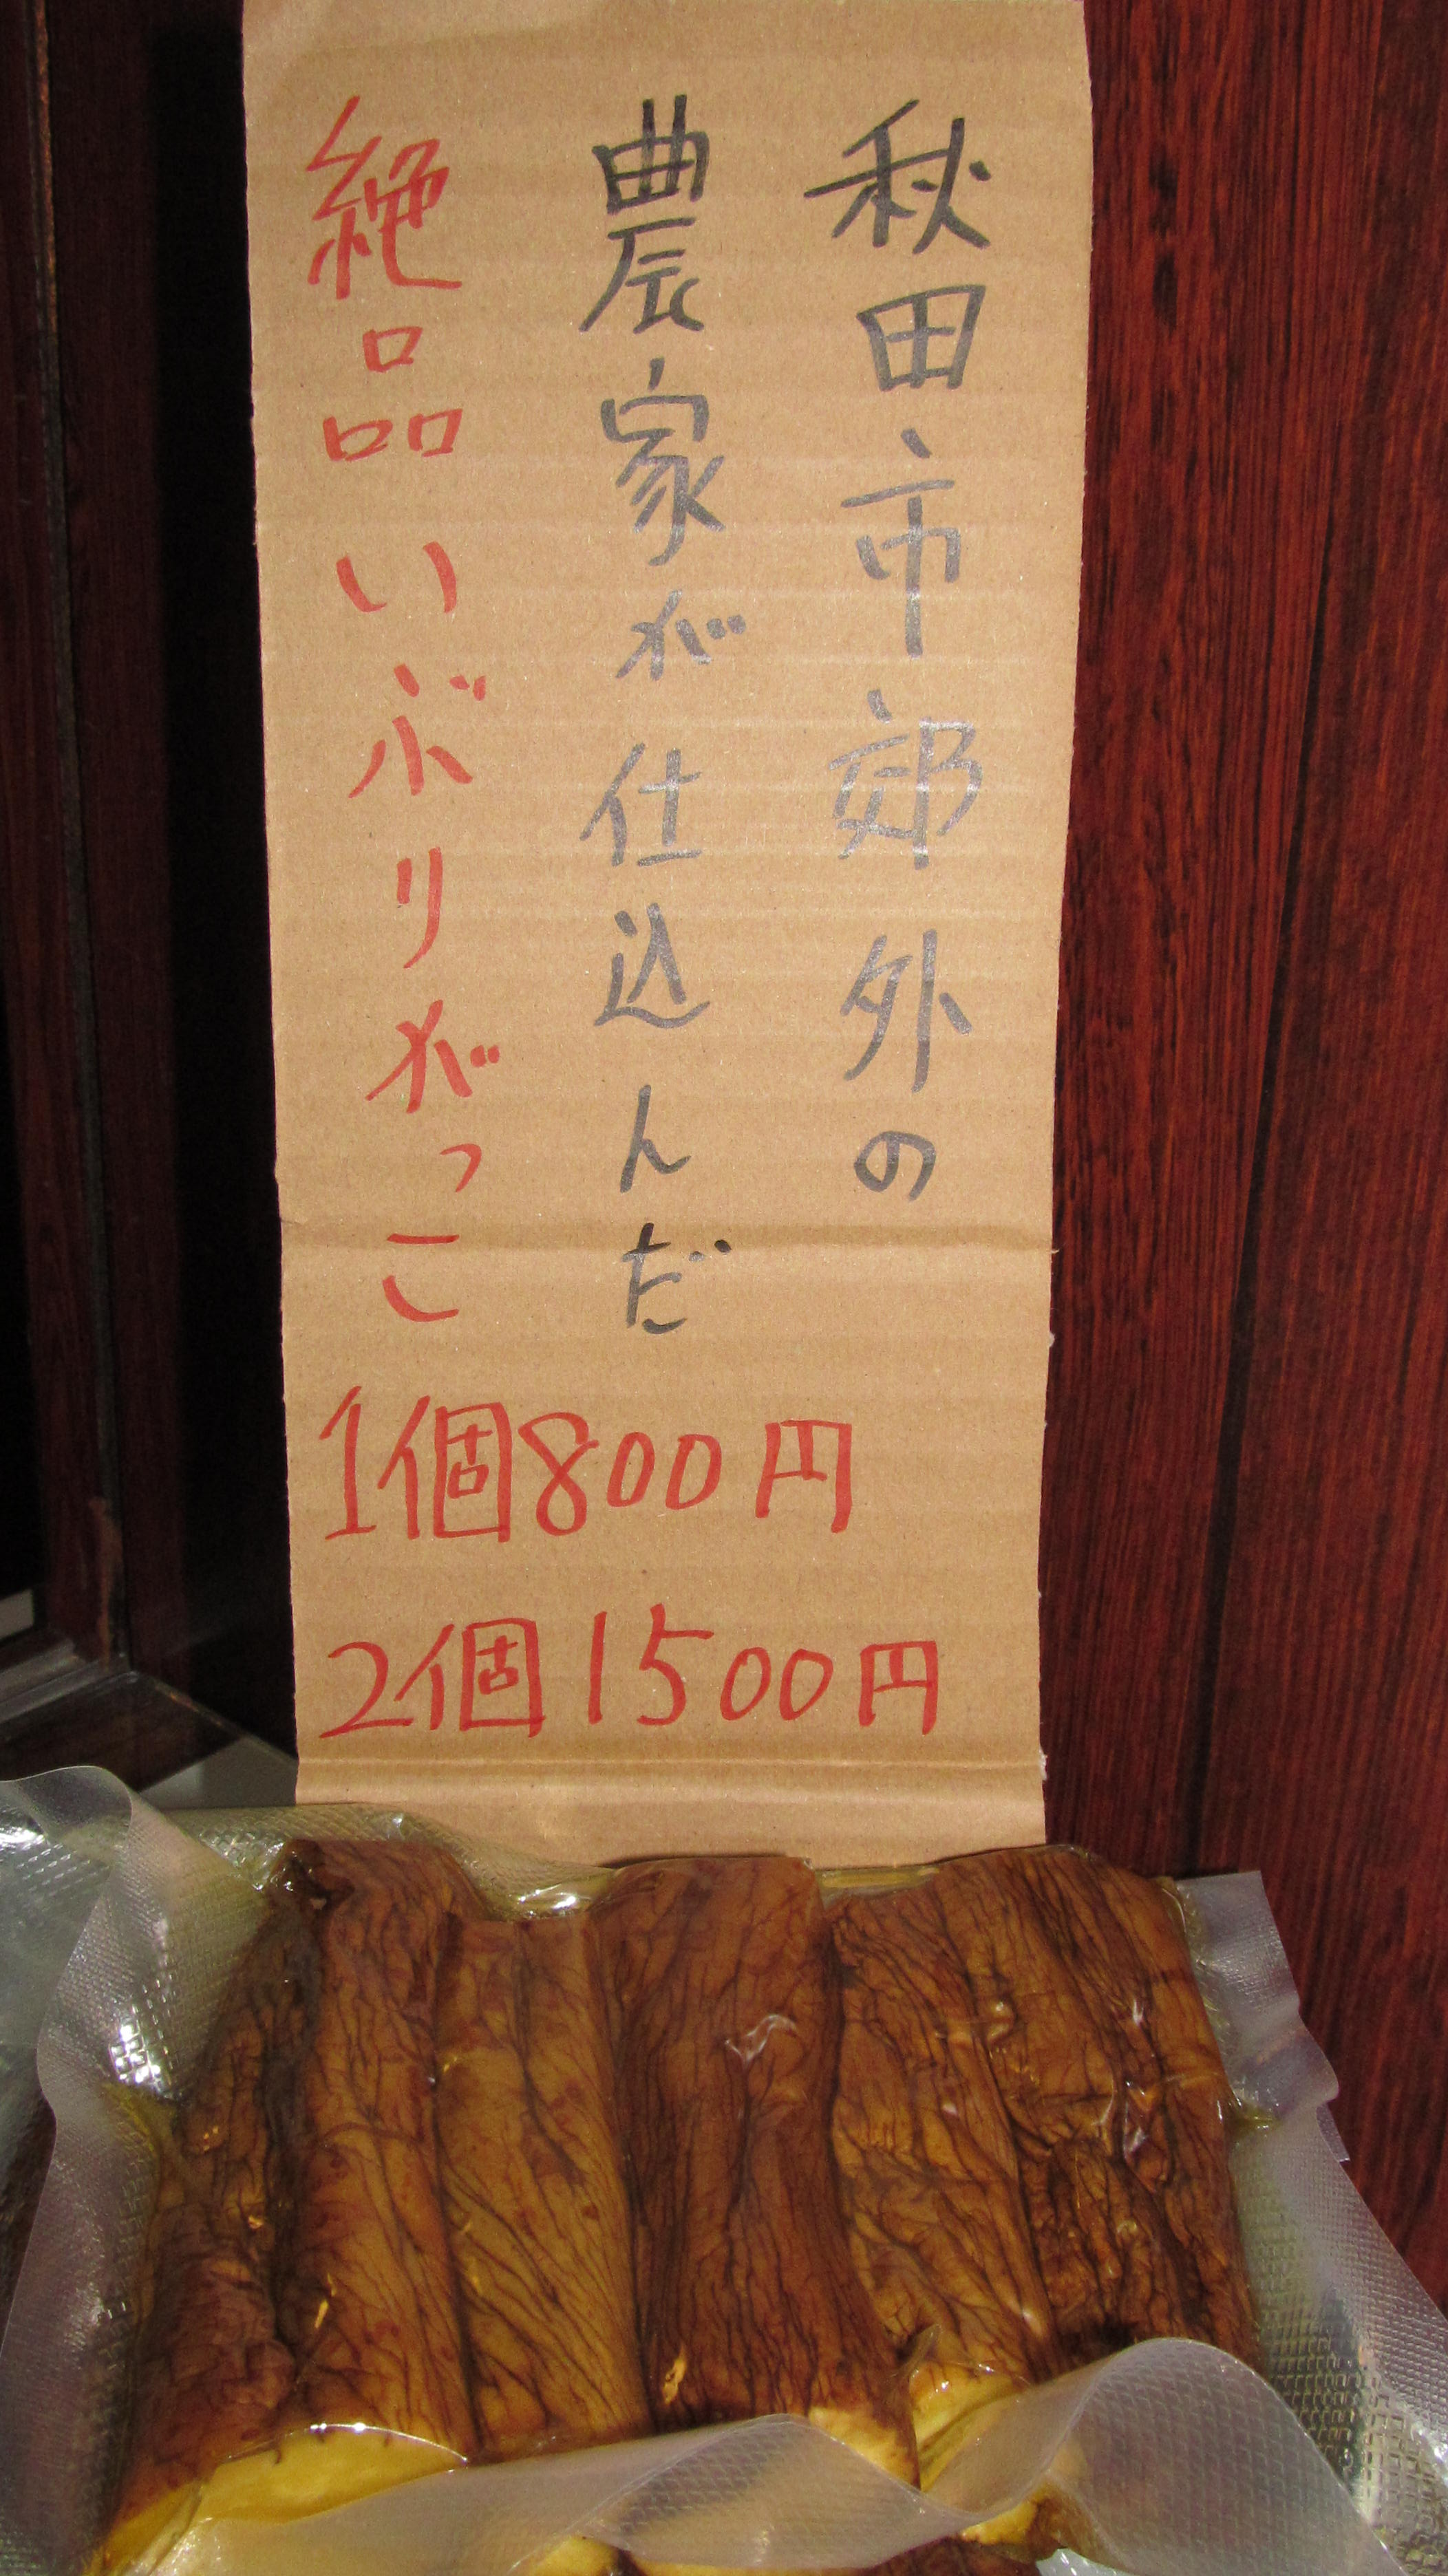 秋田市郊外の
農家が仕込んだ
絶品いぶりがっこ
1個800円
2個1500円